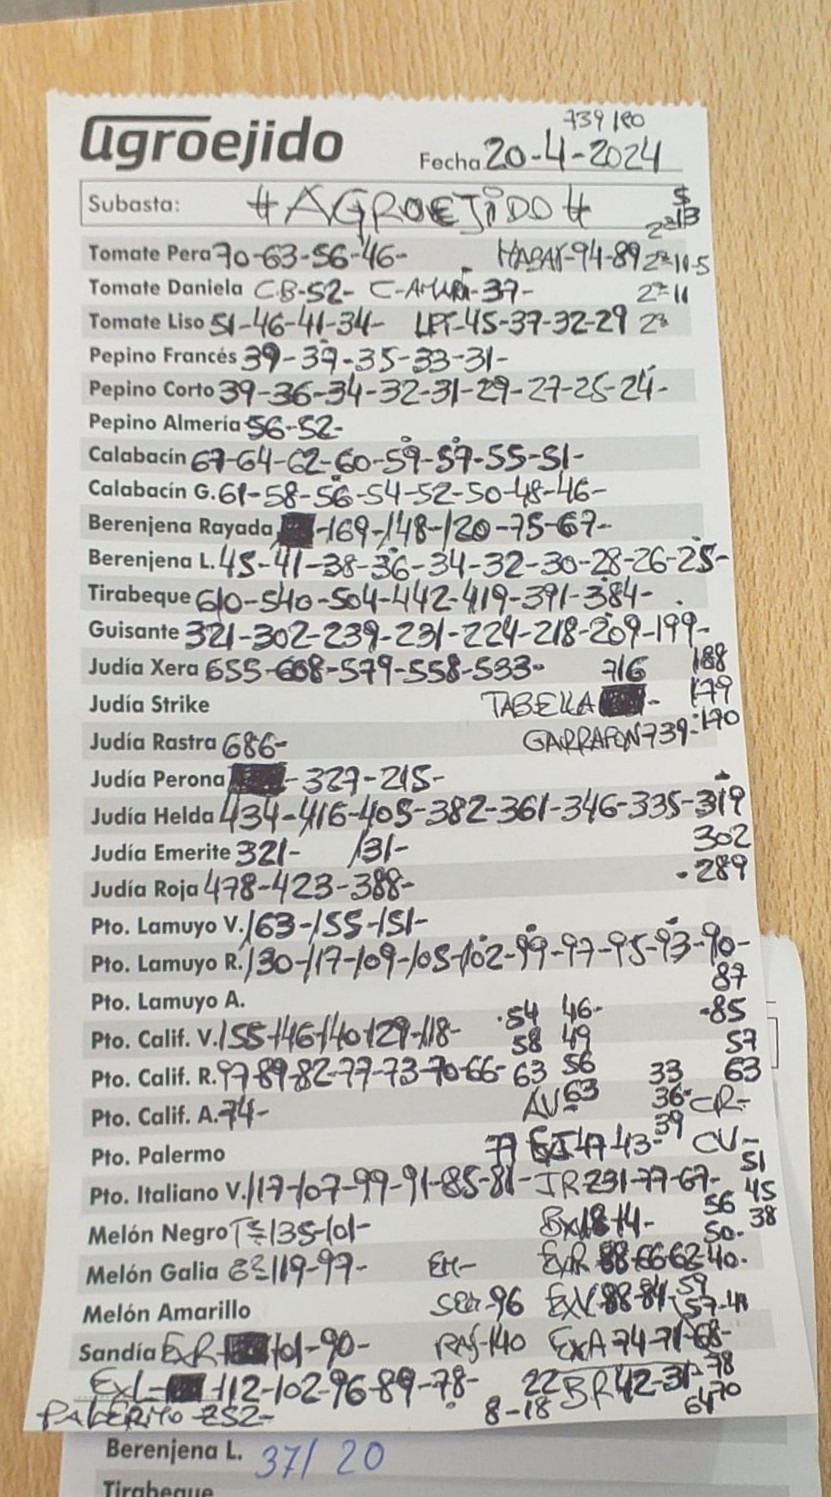 739/80
agroejido
Fecha 20-4-2024
Subasta: #AGROEJIDO# $
2ª 13
Tomate Pera 70-63-56-46- HABAS-94-89 2ª-11-5
Tomate Daniela C.B-52- 37- 2ª-11
Tomate Liso 51-46-41-34- 45-37-32-29
Pepino Francés 39-37-35-33-31-
Pepino Corto 39-36-34-32-31-29-27-25-24-
Pepino Almería 56-52-
Calabacín 67-64-62-60-59-57-55-51-
Calabacín G. 61-58-56-54-52-50-48-46-
Berenjena Rayada -169-148-120-75-67-
Berenjena L. 45-41-38-36-34-32-30-28-26-25-
Tirabeque 610-540-504-442-419-391-384-
Guisante 321-302-239-231-224-218-209-199-
Judía Xera 655-608-579-558-533- 716 188
Judía Strike TABELLA - 179
Judía Rastra 686- GARRAFON 739- 170
Judía Perona - 327-215-
Judía Helda 434-416-405-382-361-346-335-319
302
Judía Emerite 321- 131-
289
Judía Roja 478-423-388-
Pto. Lamuyo V. 163-155-151-
Pto. Lamuyo R. 130-117-109-105-102-99-97-95-93-90-
87
Pto. Lamuyo A. 54 46- -85
Pto. Calif. V. 155-146-140-129-118- 58 49 57
Pto. Calif. R. 97-89-82-77-73-70-66- 63 56 33 63
Pto. Calif. A. 74- AV 63 36- CR-
39
Pto. Palermo 47-43- CV-
51
Pto. Italiano V. 117-107-99-91-85-81- 77-67- 45
56 38
Melón Negro 135-101- 50-
Melón Galia 119-97- EM- ExR 88-66-62-40-
59
Melón Amarillo 96 ExV 88-84- 57-
Sandía ExR 101-90- RAS-140 ExA 74-71-68-
ExL- 112-102-96-89-78- 22 BR 42-31- 78
70
PALERMO 252- 8-18 64
Berenjena L. 37/20
Tirabeque